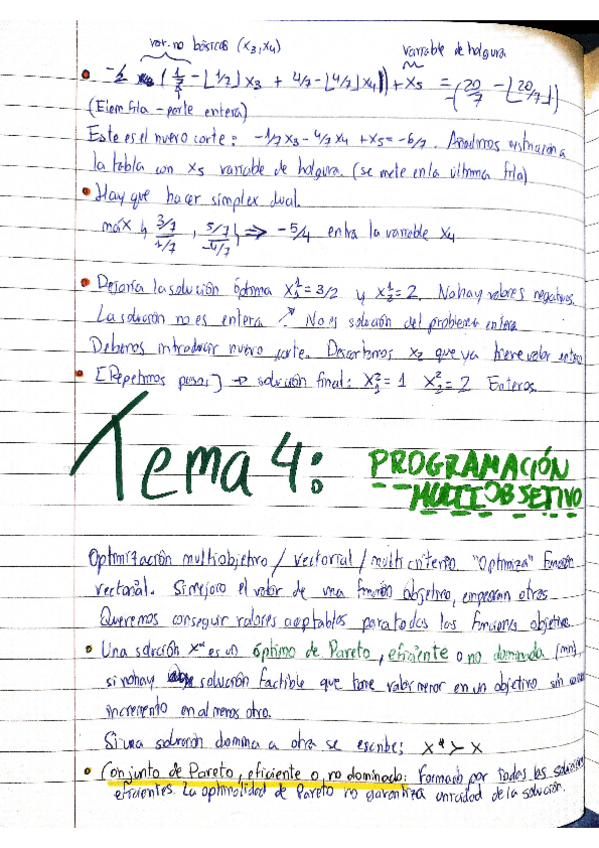 var. no básicas (x3, x4)
variable de holgura
- (1/7 - ⌊1/7⌋) x3 + 4/7 - ⌊4/7⌋ x4) + x5 = -(20/7 - ⌊20/7⌋)
(Elem fila - parte entera)
Este es el nuevo corte: -1/7 x3 - 4/7 x4 + x5 = -6/7. Añadimos restricción a
la tabla con x5 variable de holgura. (se mete en la última fila)
• Hay que hacer simplex dual.
máx { 3/7 / -1/7, 5/7 / -4/7 } ⇒ -5/4 entra la variable x4
• Dejaría la solución óptima x1 = 3/2 y x2 = 2. No hay valores negativos.
La solución no es entera. No es solución del problema entero
Debemos introducir nuevo corte. Descartamos x2 que ya tiene valor entero
• [Repetimos pasos] → solución final: x1 = 1 x2 = 2 Enteros.
Tema 4: PROGRAMACIÓN
MULTIOBJETIVO
Optimización multiobjetivo / vectorial / multicriterio "Optimiza" función
vectorial. Si mejoro el valor de una función objetivo, empeoran otras
Queremos conseguir valores aceptables para todas las funciones objetivo.
• Una solución x* es un óptimo de Pareto, eficiente o no dominada (min)
si no hay solución factible que tome valor menor en un objetivo sin causar
incremento en al menos otro.
Si una solución domina a otra se escribe: x* ≻ x
• Conjunto de Pareto, eficiente o no dominado: Formado por todas las soluciones
eficientes. La optimalidad de Pareto no garantiza unicidad de la solución.